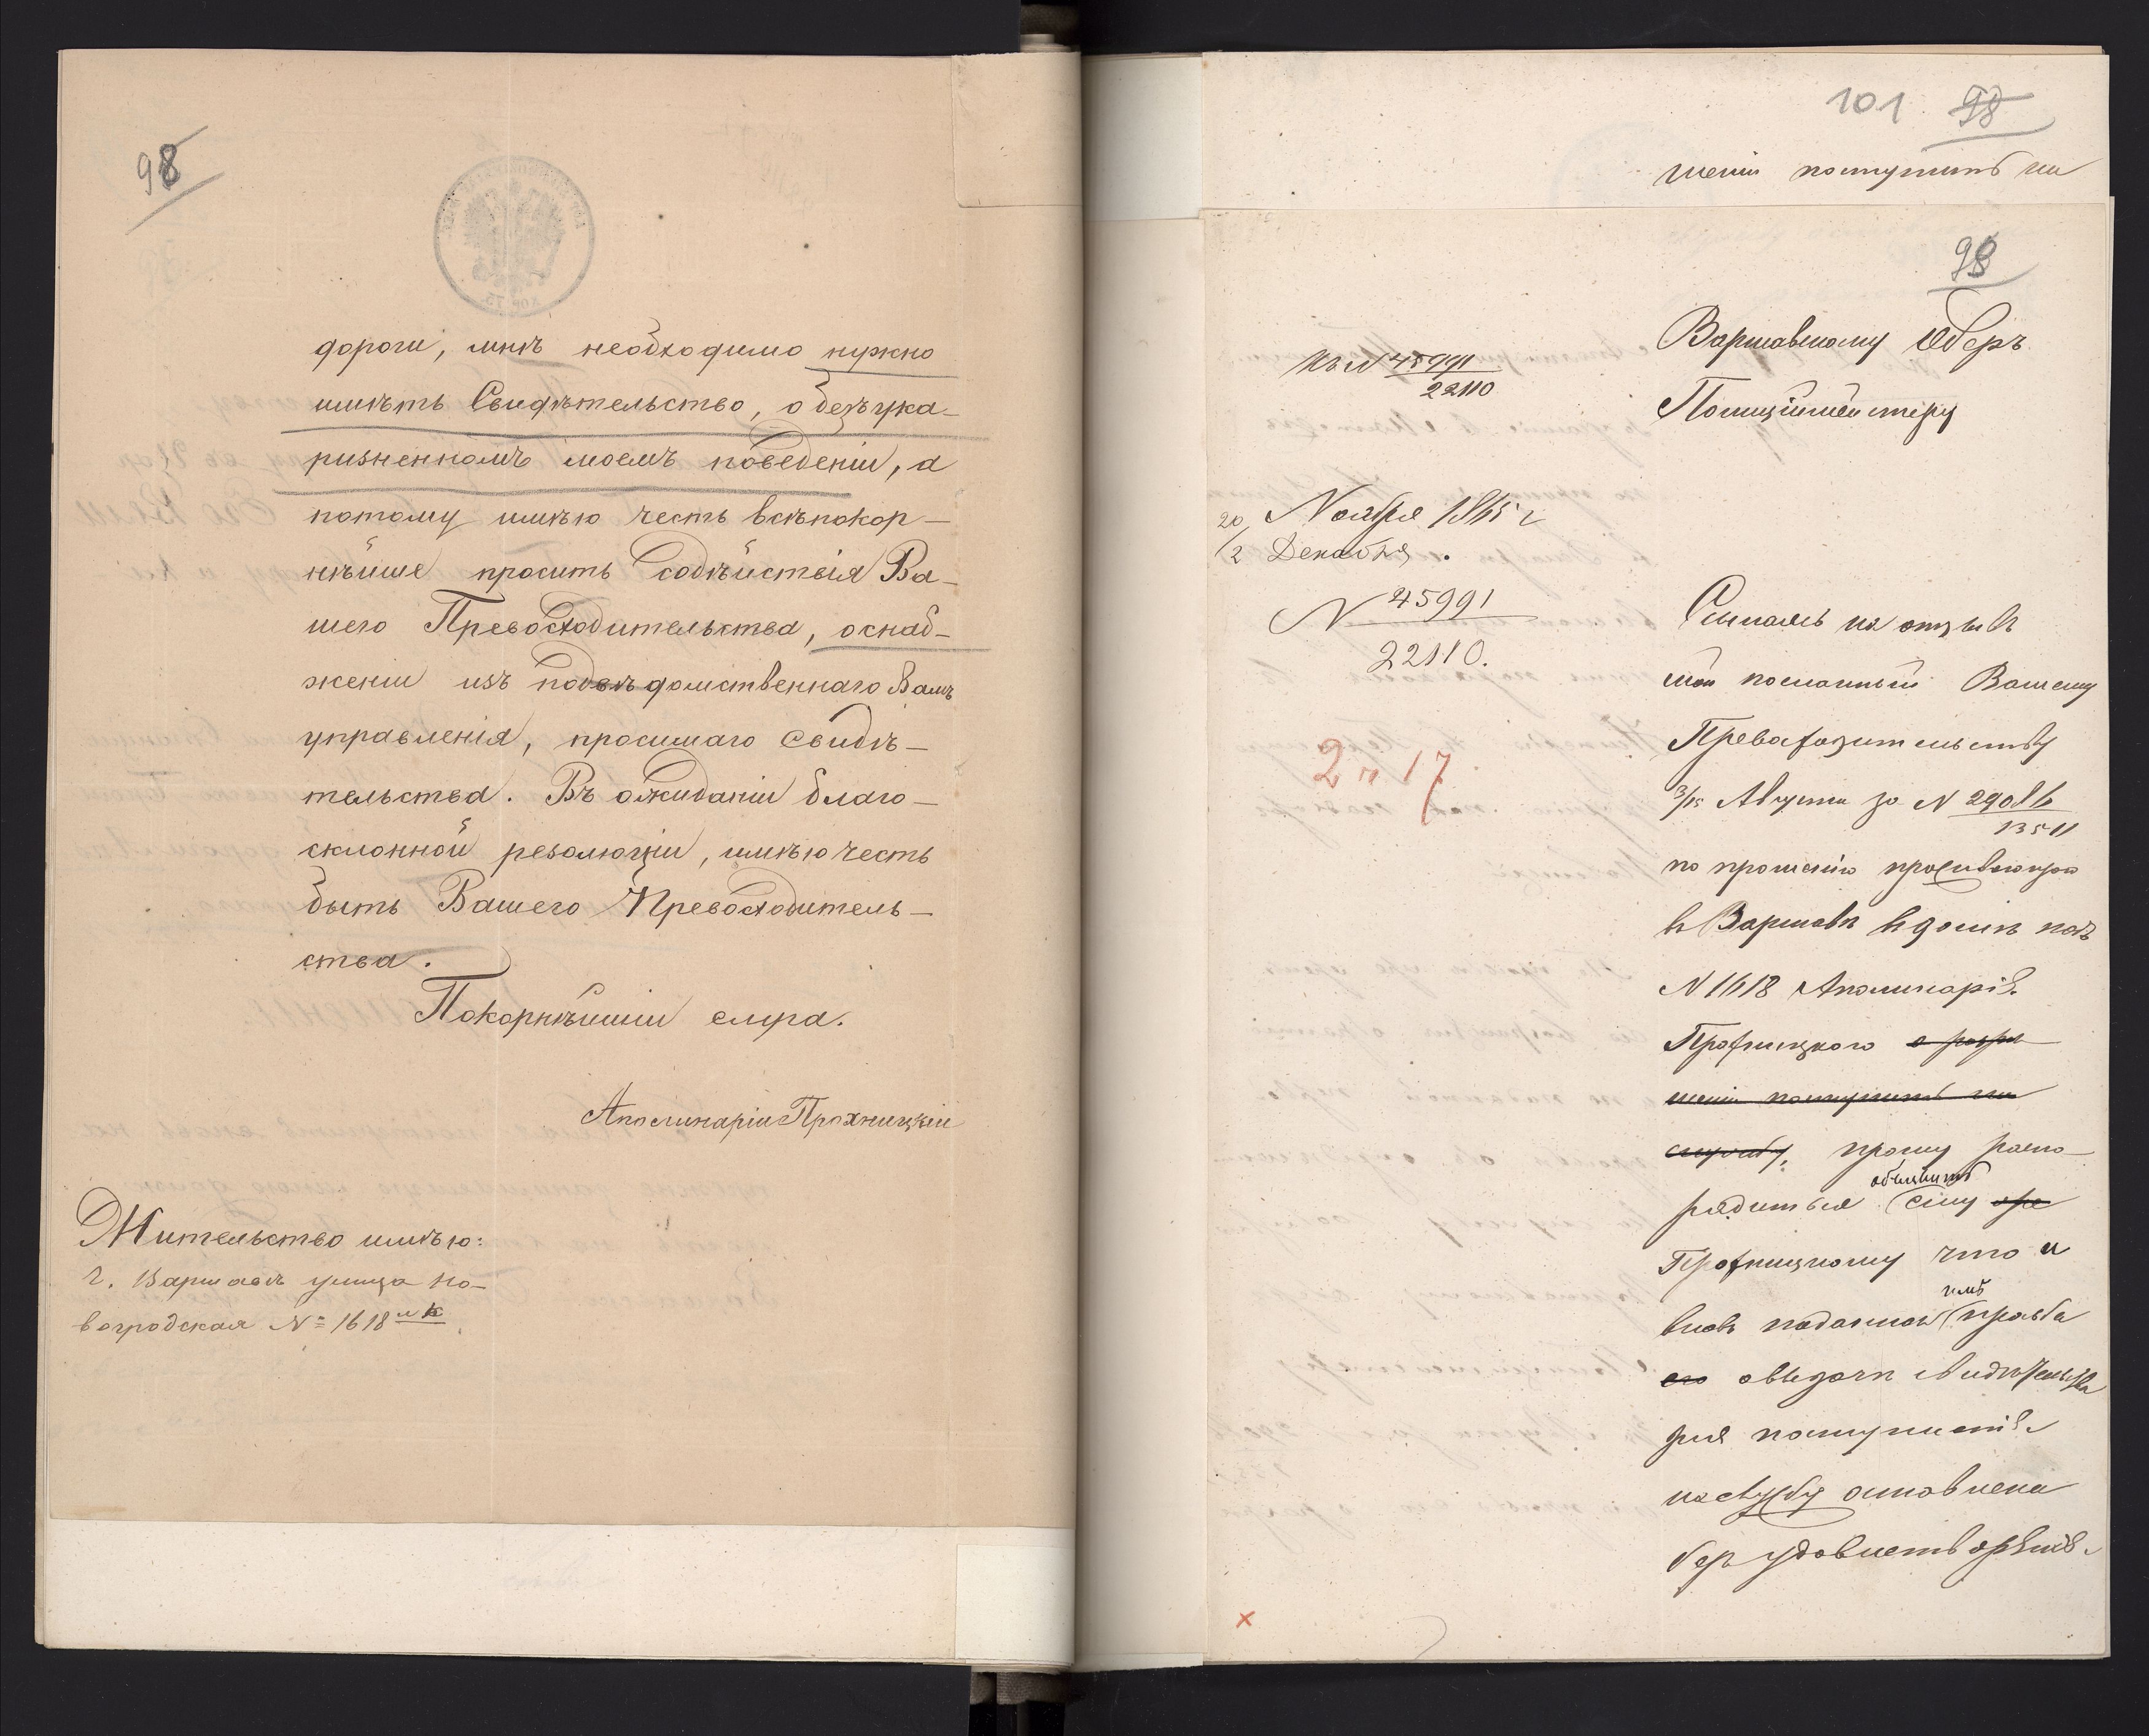 98
дороги, мнѣ необходимо нужно
имѣть Свидѣтельство, о безъука-
ризненномъ моемъ поведеніи, а
потому имѣю честь всѣпокор-
нѣйше просить Содѣйствія Ва-
шего Превосходительства, оснаб-
женіи изъ подвѣдомственнаго Вамъ
управленія, просимаго Свидѣ-
тельства. Въ ожиданіи благо-
склонной резолюціи, имѣю честь
быть Вашего Превосходитель-
ства.
Покорнѣйшій слуга.
Аполинарій Прохницкій
Жительство имѣю:
г. Варшавѣ улица Но-
вогродская № 1618
101 98
шеніи поступить на
98
Къ N 45991
22110
Варшавскому Оберъ
Полиціймейстеру
20/2 Ноября 1865 г
Декабря.
N 45991
22110.
2 17
Ссылаясь на отзывъ
мой посланный Вашему
Превосходительству
3/15 Августа за N 29086
13511
по прошенію проживающаго
въ Варшавѣ въ домѣ подъ
N 1618 Аполинарія
Прохницкаго о разрѣ
шеніи поступить на
службу, прошу распо-
рядиться объявить ему
Прохницкому что и
вновь поданная имъ просьба
его о выдачѣ свидѣтельства
для поступленія
на службу оставлена
безъ удовлетворенія.